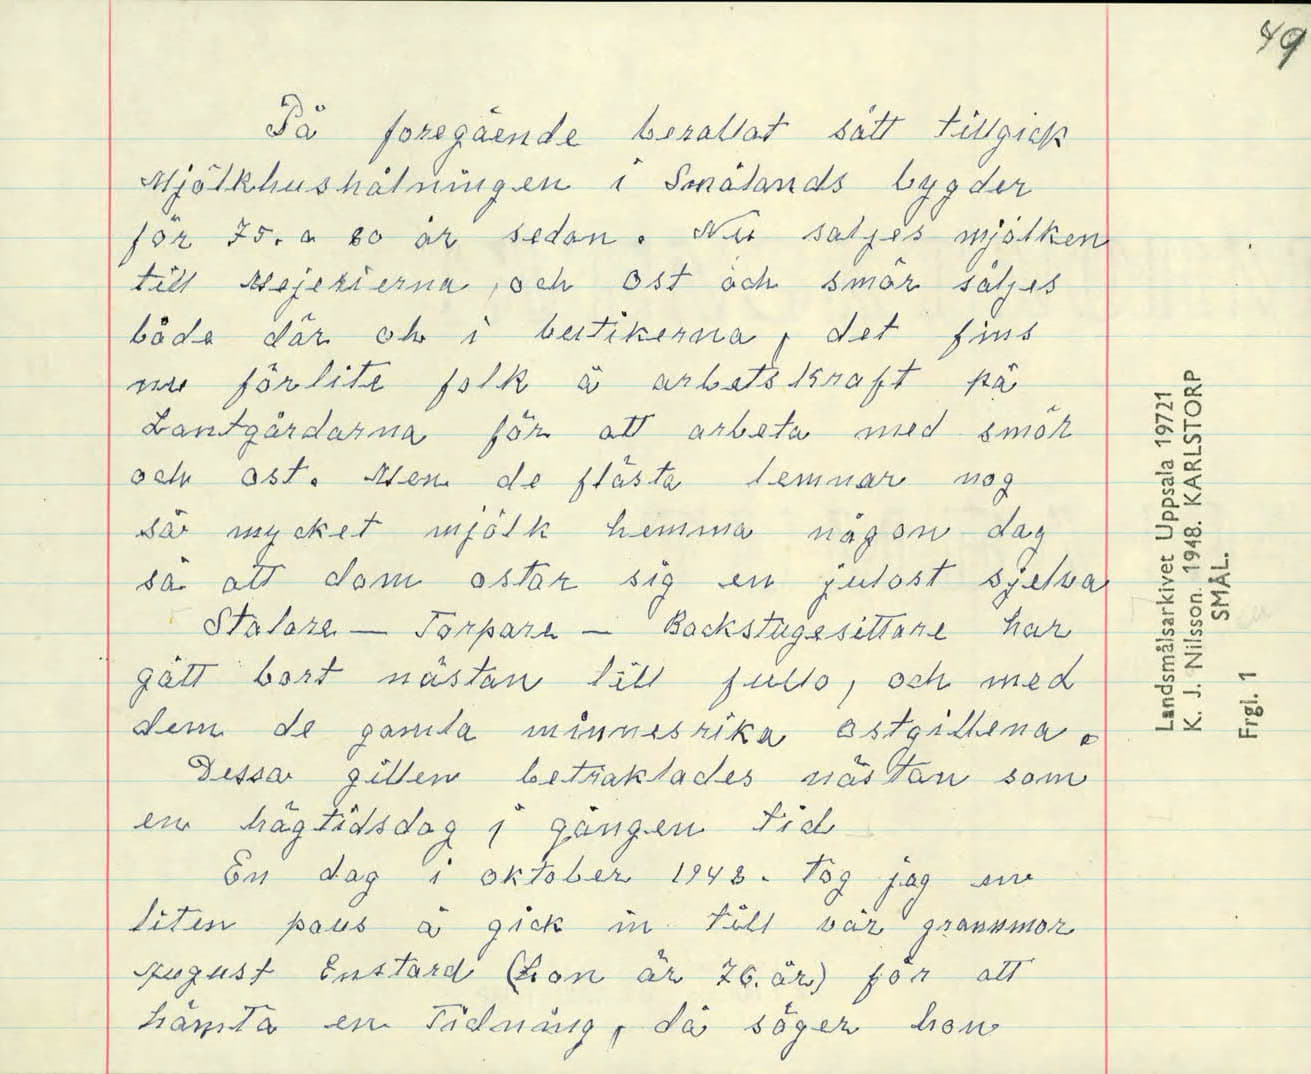 49
På foregående berattat sätt tillgick
Mjölkhushålningen i Smålands bygder
för 75. a 80 år sedan. Nu saljes mjölken
till Mejerierna, och Ost och smör säljes
både där oh i butikerna, det fins
nu förlite folk å arbetskraft på
Lantgårdarna för att arbeta med smör
och ost. Men de flästa lemnar nog
så mycket mjölk hemma någon dag
så att dom ostar sig en julost sjelva
Statare — Torpare — Backstugesittare har
gått bort nästan till fullo, och med
dem de gamla minnesrika ostgillena.
Dessa gillen betraktades nästan som
en högtidsdag i gången tid
En dag i oktober 1948. tog jag en
liten paus å gick in till vår grannmor
August Enstard (hon är 76. år) för att
hämta en Tidning, då säger hon
Landsmålsarkivet Uppsala 19721
K. J. Nilsson. 1948. KARLSTORP
SMÅL.
Frgl. 1